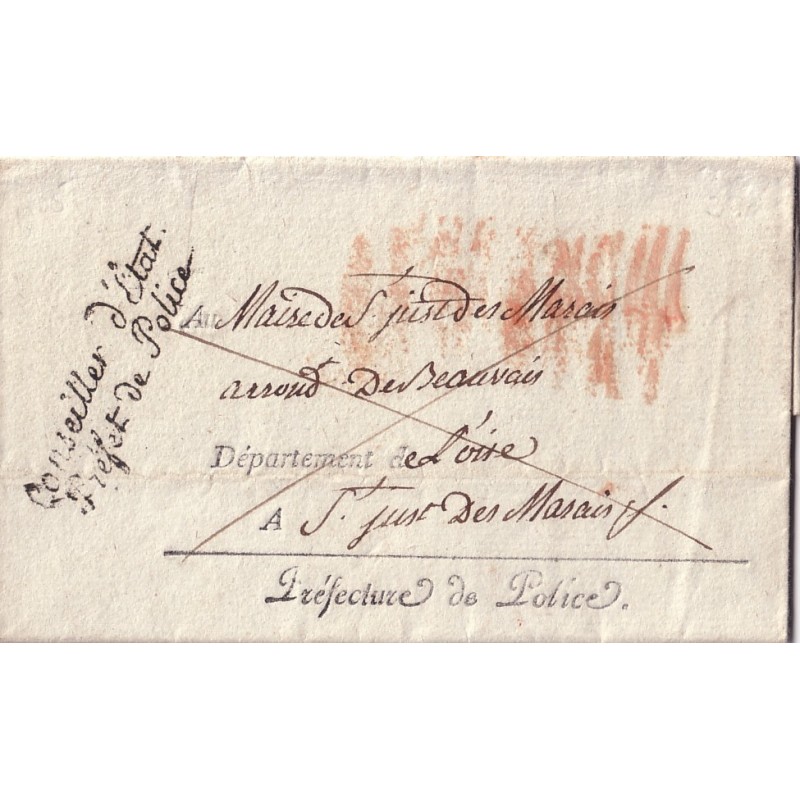 Conseiller d'État.
Préfet de Police
Au Maire de St just des Marais
arrond. De Beauvais
Département de L'oise
A St just Des Marais
Préfecture de Police.